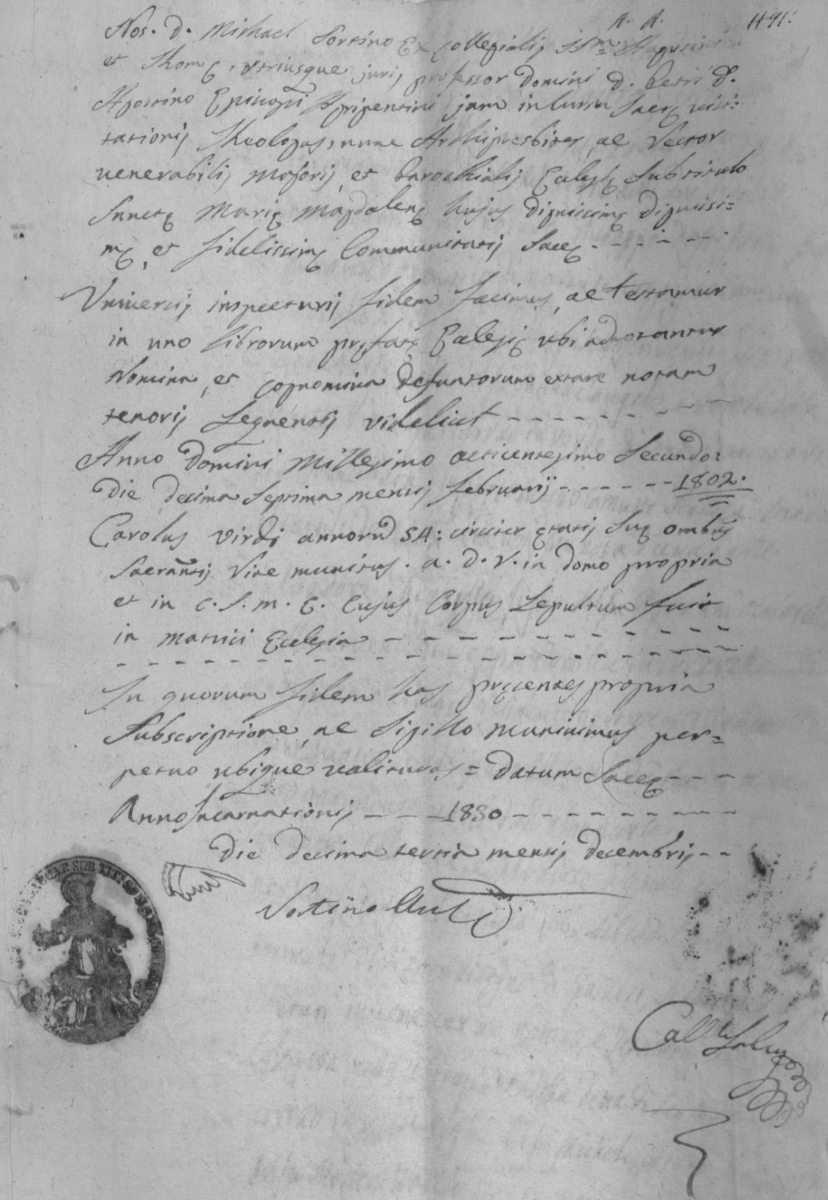 1191.
Nos. D. Michael Sortino Ex Collegialis SS.m
et Romę, utriusque juris professor Domini D. Petri D.
Agostino Episcopi Agrigentini jam in cursu Sacrę visi-
tationis Theologus, nunc Archipresbiter, ac Rector
venerabilis Majoris, et Parochialis Eclesię Subtitulo
Sanctę Marię Magdalenę hujus
mę, et fidelissimę Communitatis Saccę - - - -
Universis inspecturis fidem facimus, ac testamur
in uno librorum pręfatę Eclesię ubi adnotantur
Nomina, et cognomina defuntorum extare notam
tenoris seguentis videlicet - - - - - - -
Anno Domini Millesimo octicentesimo Secundo:
die decima septima mensis februarij - - - - - - 1802.
Carolus Virdi annorū 54: circiter ętatis suę ombus
Sacramtis Rite munitus. a. D. V. in domo propria
et in C. S. M. E. Cujus Corpus Sepultum fuit
in matrici Ecclesia - - - - - - - - -
In quorum fidem has pręsentes propria
Subscriptione, ac Sigillo munivimus per=
petuo ubique valituras = datum Saccę - - -
Anno Incarnationis - - - 1830 - - - - - -
die decima tertia mensis decembris - -
Sortino